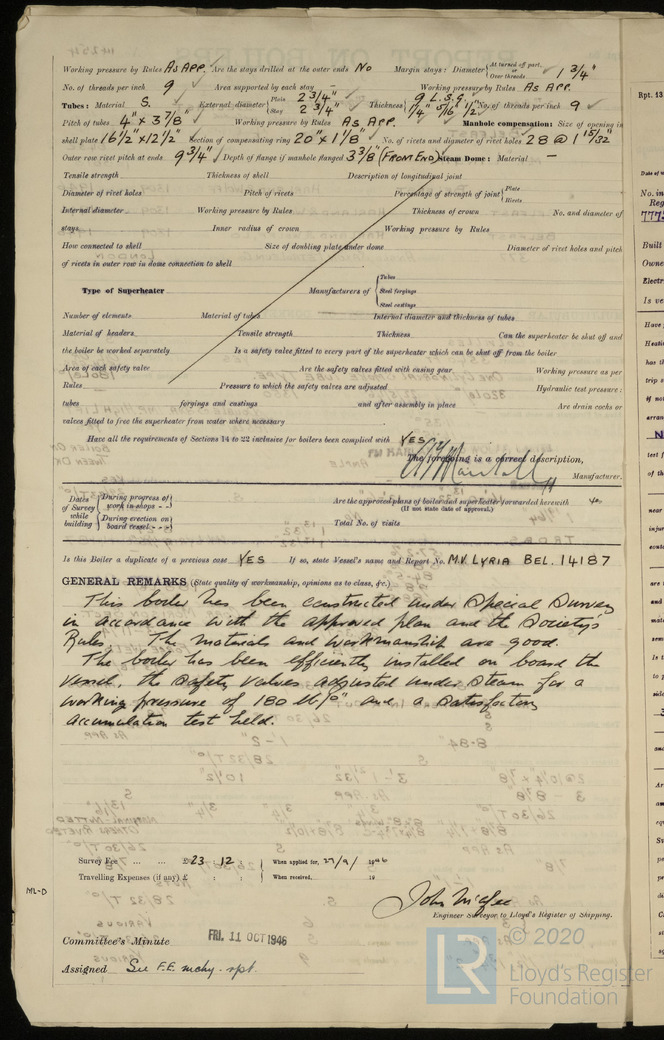 Working pressure by Rules AS APP. Are the stays drilled at the outer ends NO Margin stays: Diameter { At turned off part, Over threads 1 3/4"
No. of threads per inch 9 Area supported by each stay Working pressure by Rules AS APP.
Tubes: Material S. External diameter { Plain 2 3/4" Stay 2 3/4" Thickness { 9 L.S.G. 1/4" 5/16" 1/2" No. of threads per inch 9
Pitch of tubes 4" x 3 7/8" Working pressure by Rules AS APP. Manhole compensation: Size of opening in
shell plate 16 1/2" x 12 1/2" Section of compensating ring 20" x 1 1/8" No. of rivets and diameter of rivet holes 28 @ 1 15/32"
Outer row rivet pitch at ends 9 3/4" Depth of flange if manhole flanged 3 3/8" (FRONT END) Steam Dome: Material —
Tensile strength Thickness of shell Description of longitudinal joint
Diameter of rivet holes Pitch of rivets Percentage of strength of joint { Plate Rivets
Internal diameter Working pressure by Rules Thickness of crown No. and diameter of
stays Inner radius of crown Working pressure by Rules
How connected to shell Size of doubling plate under dome Diameter of rivet holes and pitch
of rivets in outer row in dome connection to shell
Type of Superheater Manufacturers of { Tubes Steel forgings Steel castings
Number of elements Material of tubes Internal diameter and thickness of tubes
Material of headers Tensile strength Thickness Can the superheater be shut off and
the boiler be worked separately Is a safety valve fitted to every part of the superheater which can be shut off from the boiler
Area of each safety valve Are the safety valves fitted with easing gear Working pressure as per
Rules Pressure to which the safety valves are adjusted Hydraulic test pressure:
tubes forgings and castings and after assembly in place Are drain cocks or
valves fitted to free the superheater from water where necessary
Have all the requirements of Sections 14 to 22 inclusive for boilers been complied with YES
The foregoing is a correct description,
Manufacturer.
Dates of Survey while building { During progress of work in shops - - During erection on board vessel - - -
Are the approved plans of boiler and superheater forwarded herewith
(If not state date of approval.)
Total No. of visits
Is this Boiler a duplicate of a previous case YES If so, state Vessel's name and Report No. M.V. LYRIA BEL. 14187
GENERAL REMARKS (State quality of workmanship, opinions as to class, &c.)
This boiler has been constructed under Special Survey
in accordance with the approved plan and the Society's
Rules. The materials and workmanship are good.
The boiler has been efficiently installed on board the
vessel, the safety valves adjusted under steam for a
working pressure of 180 lb/□" and a satisfactory
accumulation test held.
Survey Fee ... ... £23 : 12 : When applied for, 27/9/ 1946
Travelling Expenses (if any) £ : : When received, 19
ML-D
John McAfee
Engineer Surveyor to Lloyd's Register of Shipping.
Committee's Minute FRI. 11 OCT 1946
Assigned See F.E. mchy. rpt.
Rpt. 13
© 2020
Lloyd's Register
Foundation
LR